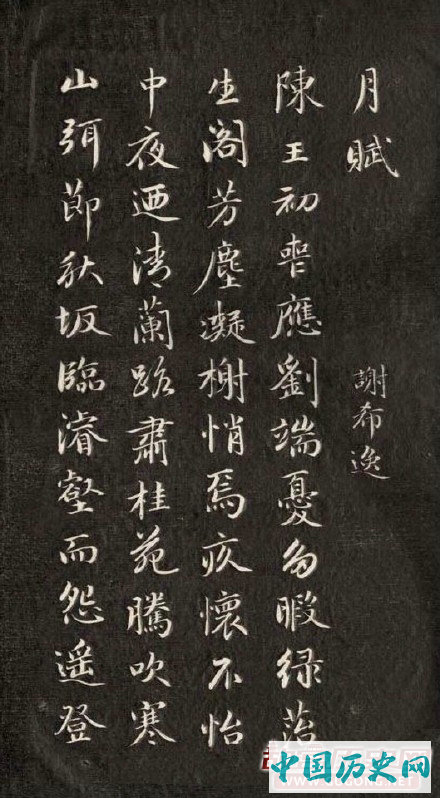 月賦
謝希逸
陳王初喪應劉端憂多暇綠苔
生閣芳塵凝榭悄焉疚懷不怡
中夜迺清蘭路肅桂苑騰吹寒
山弭節秋坂臨濬壑而怨遙登
中国历史网